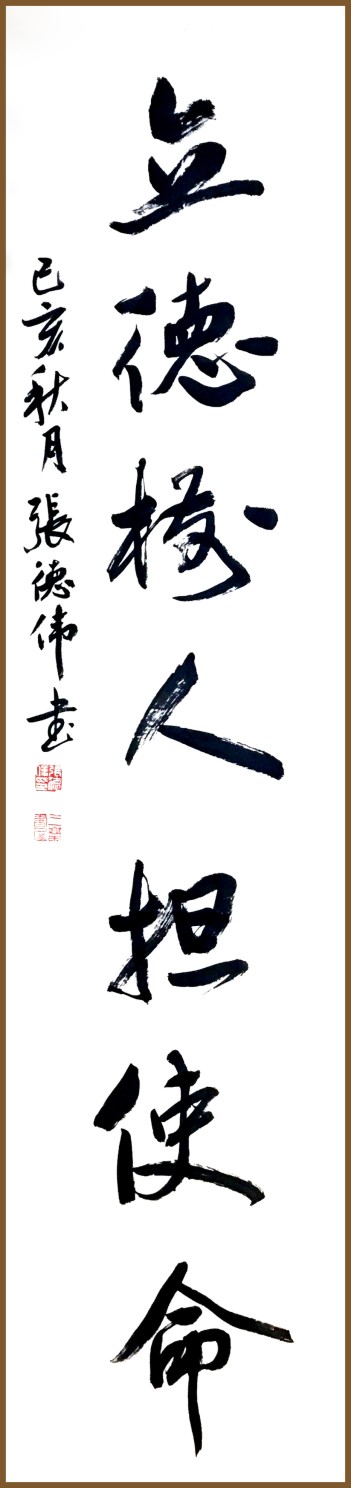 立德树人担使命
己亥秋月 張德伟书